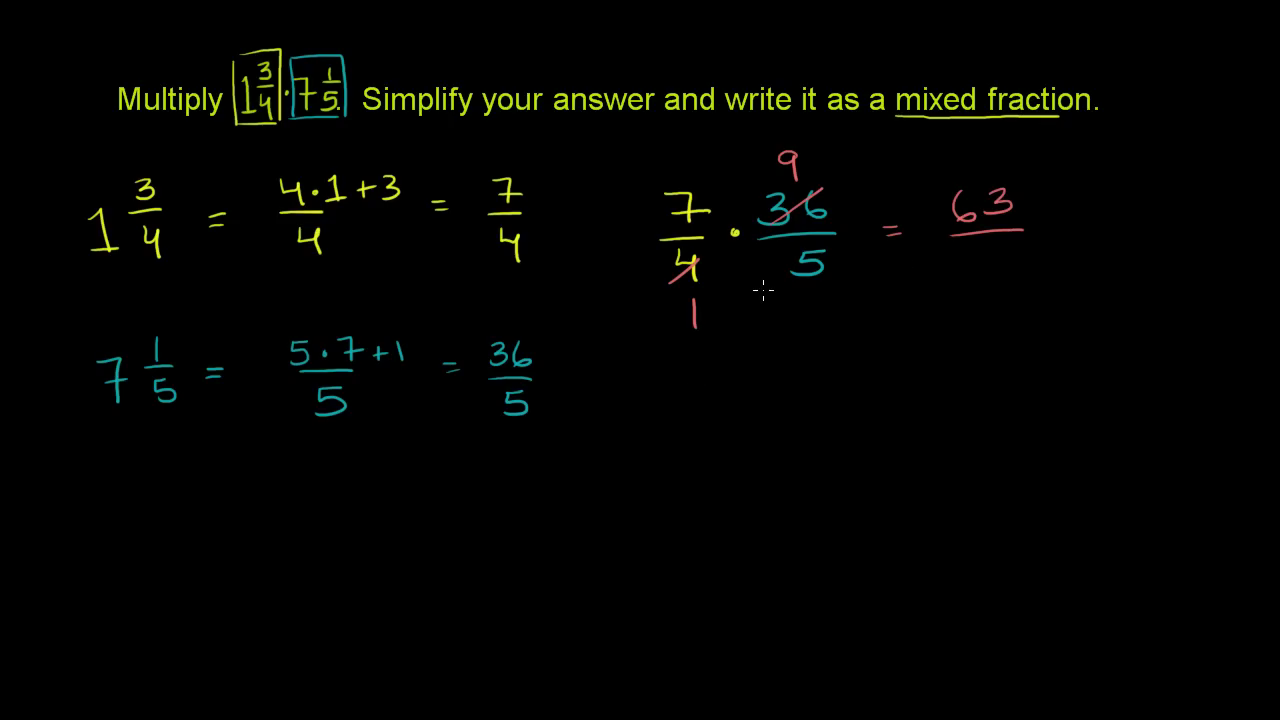 Multiply 1 3/4 · 7 1/5. Simplify your answer and write it as a mixed fraction.
1 3/4 = (4·1+3)/4 = 7/4
7/4 · 36/5 = 63/
9
1
7 1/5 = (5·7+1)/5 = 36/5